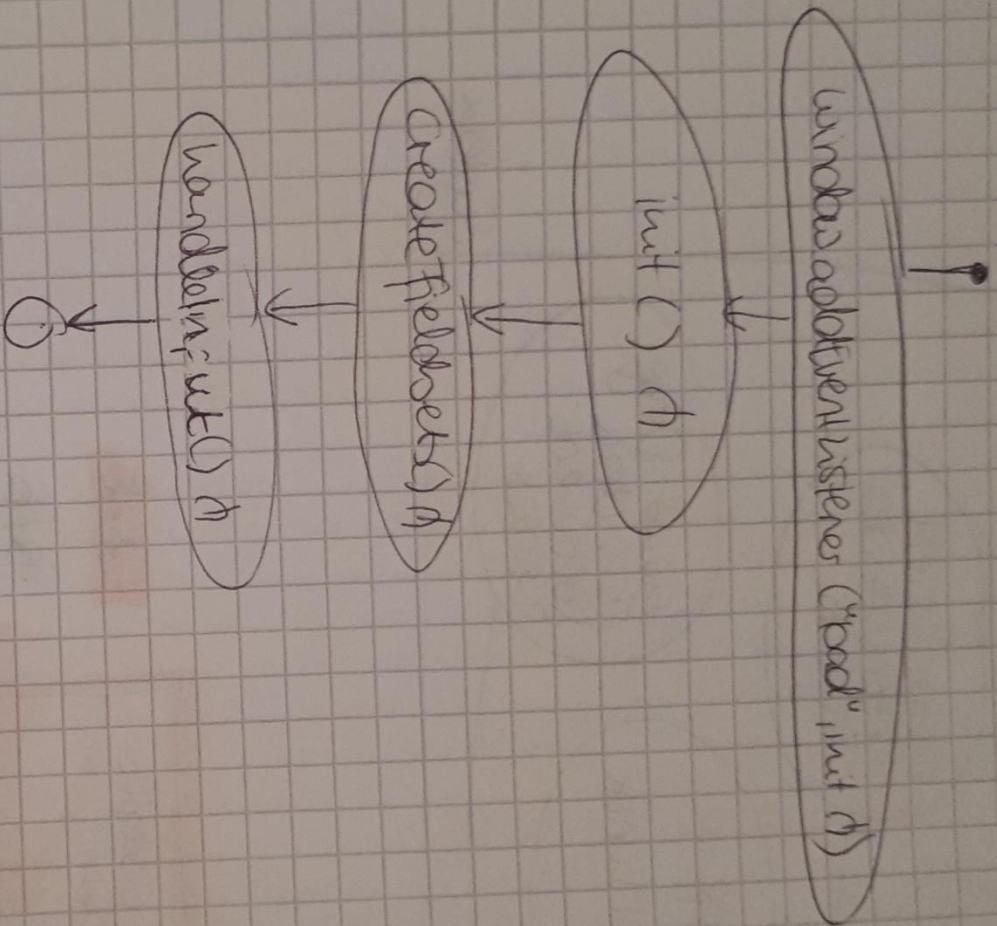 window.addEventListener ("load", init ⋔)
init () ⋔
createFieldset() ⋔
handleInput() ⋔